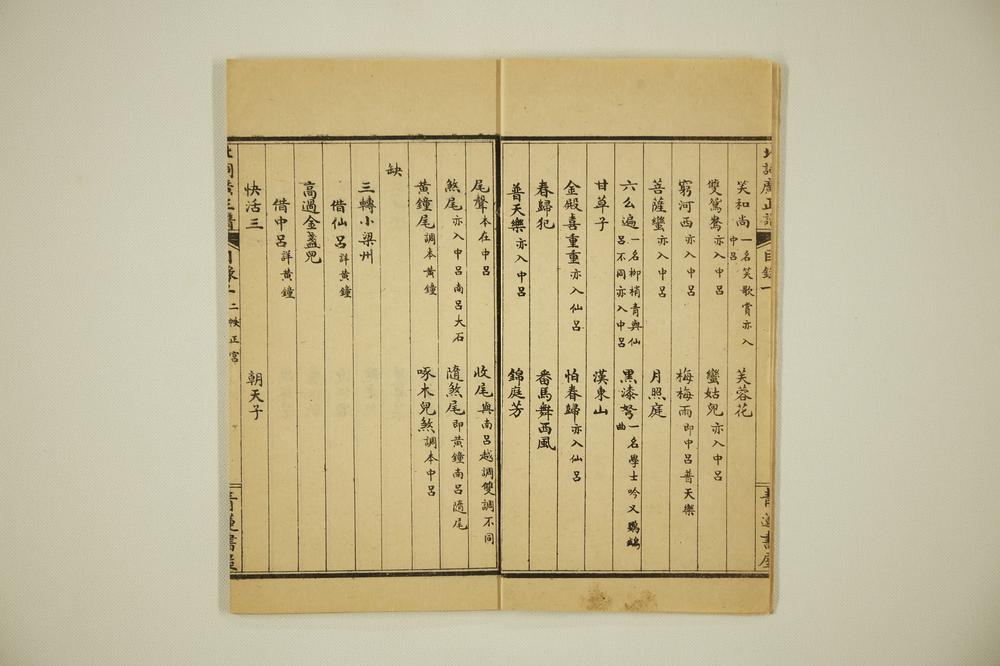 北詞廣正譜
目錄一
青蓮書屋
笑和尚一名笑歌賞亦入中呂
芙蓉花
雙鴛鴦亦入中呂
蠻姑兒亦入中呂
窮河西亦入中呂
梅梅雨即中呂普天樂
菩薩蠻亦入中呂
月照庭
六么遍一名柳梢青與仙呂不同亦入中呂
黑漆弩一名學士吟又鸚鵡曲
甘草子
漢東山
金殿喜重重亦入仙呂
怕春歸亦入仙呂
春歸犯
番馬舞西風
普天樂亦入中呂
錦庭芳
尾聲本在中呂
收尾與南呂越調雙調不同
煞尾亦入中呂南呂大石
隨煞尾即黃鐘南呂隨尾
黃鐘尾調本黃鐘
啄木兒煞調本中呂
缺
三轉小梁州
借仙呂詳黃鐘
高過金盞兒
借中呂詳黃鐘
快活三
朝天子
北詞廣正譜
目錄一
二帙正宮
青蓮書屋